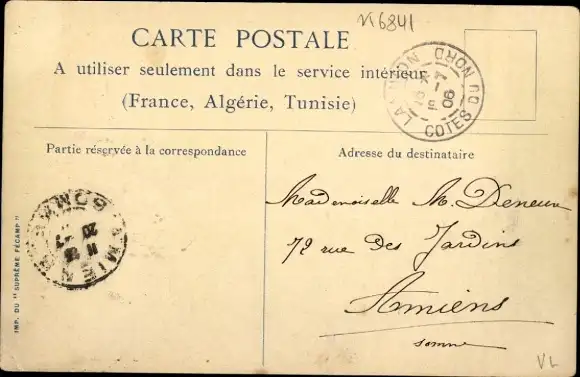 VI6841
CARTE POSTALE
A utiliser seulement dans le service intérieur
(France, Algérie, Tunisie)
Partie réservée à la correspondance
Adresse du destinataire
COTES DU NORD
06
Mademoiselle M. Deneux
72 rue des Jardins
Amiens
somme
AMIENS
SOMME
IMP. DU "SUPRÊME FÉCAMP"
VL